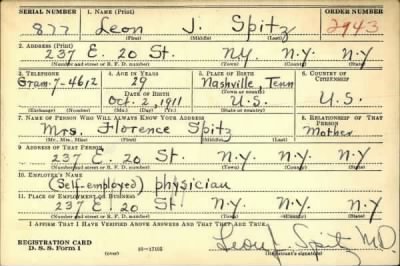 SERIAL NUMBER 1. NAME (Print) ORDER NUMBER
877 Leon J. Spitz 2943
(First) (Middle) (Last)
2. ADDRESS (Print)
237 E. 20 St. N.Y. N.Y. N.Y
(Number and street or R. F. D. number) (Town) (County) (State)
3. TELEPHONE 4. AGE IN YEARS 5. PLACE OF BIRTH 6. COUNTRY OF CITIZENSHIP
Gram. 7-4612 29 Nashville, Tenn
DATE OF BIRTH (Town or county)
Oct. 2, 1911 U.S. U.S.
(Exchange) (Number) (Mo.) (Day) (Yr.) (State or country)
7. NAME OF PERSON WHO WILL ALWAYS KNOW YOUR ADDRESS 8. RELATIONSHIP OF THAT PERSON
Mrs. Florence Spitz Mother
(Mr., Mrs., Miss) (First) (Middle) (Last)
9. ADDRESS OF THAT PERSON
237 E. 20 St. N.Y. N.Y. N.Y
(Number and street or R. F. D. number) (Town) (County) (State)
10. EMPLOYER'S NAME
(Self-employed) physician
11. PLACE OF EMPLOYMENT OR BUSINESS
237 E. 20 St. N.Y. N.Y. N.Y
(Number and street or R. F. D. number) (Town) (County) (State)
I AFFIRM THAT I HAVE VERIFIED ABOVE ANSWERS AND THAT THEY ARE TRUE.
REGISTRATION CARD Leon J. Spitz M.D.
D. S. S. Form 1 (over) (Registrant's signature)